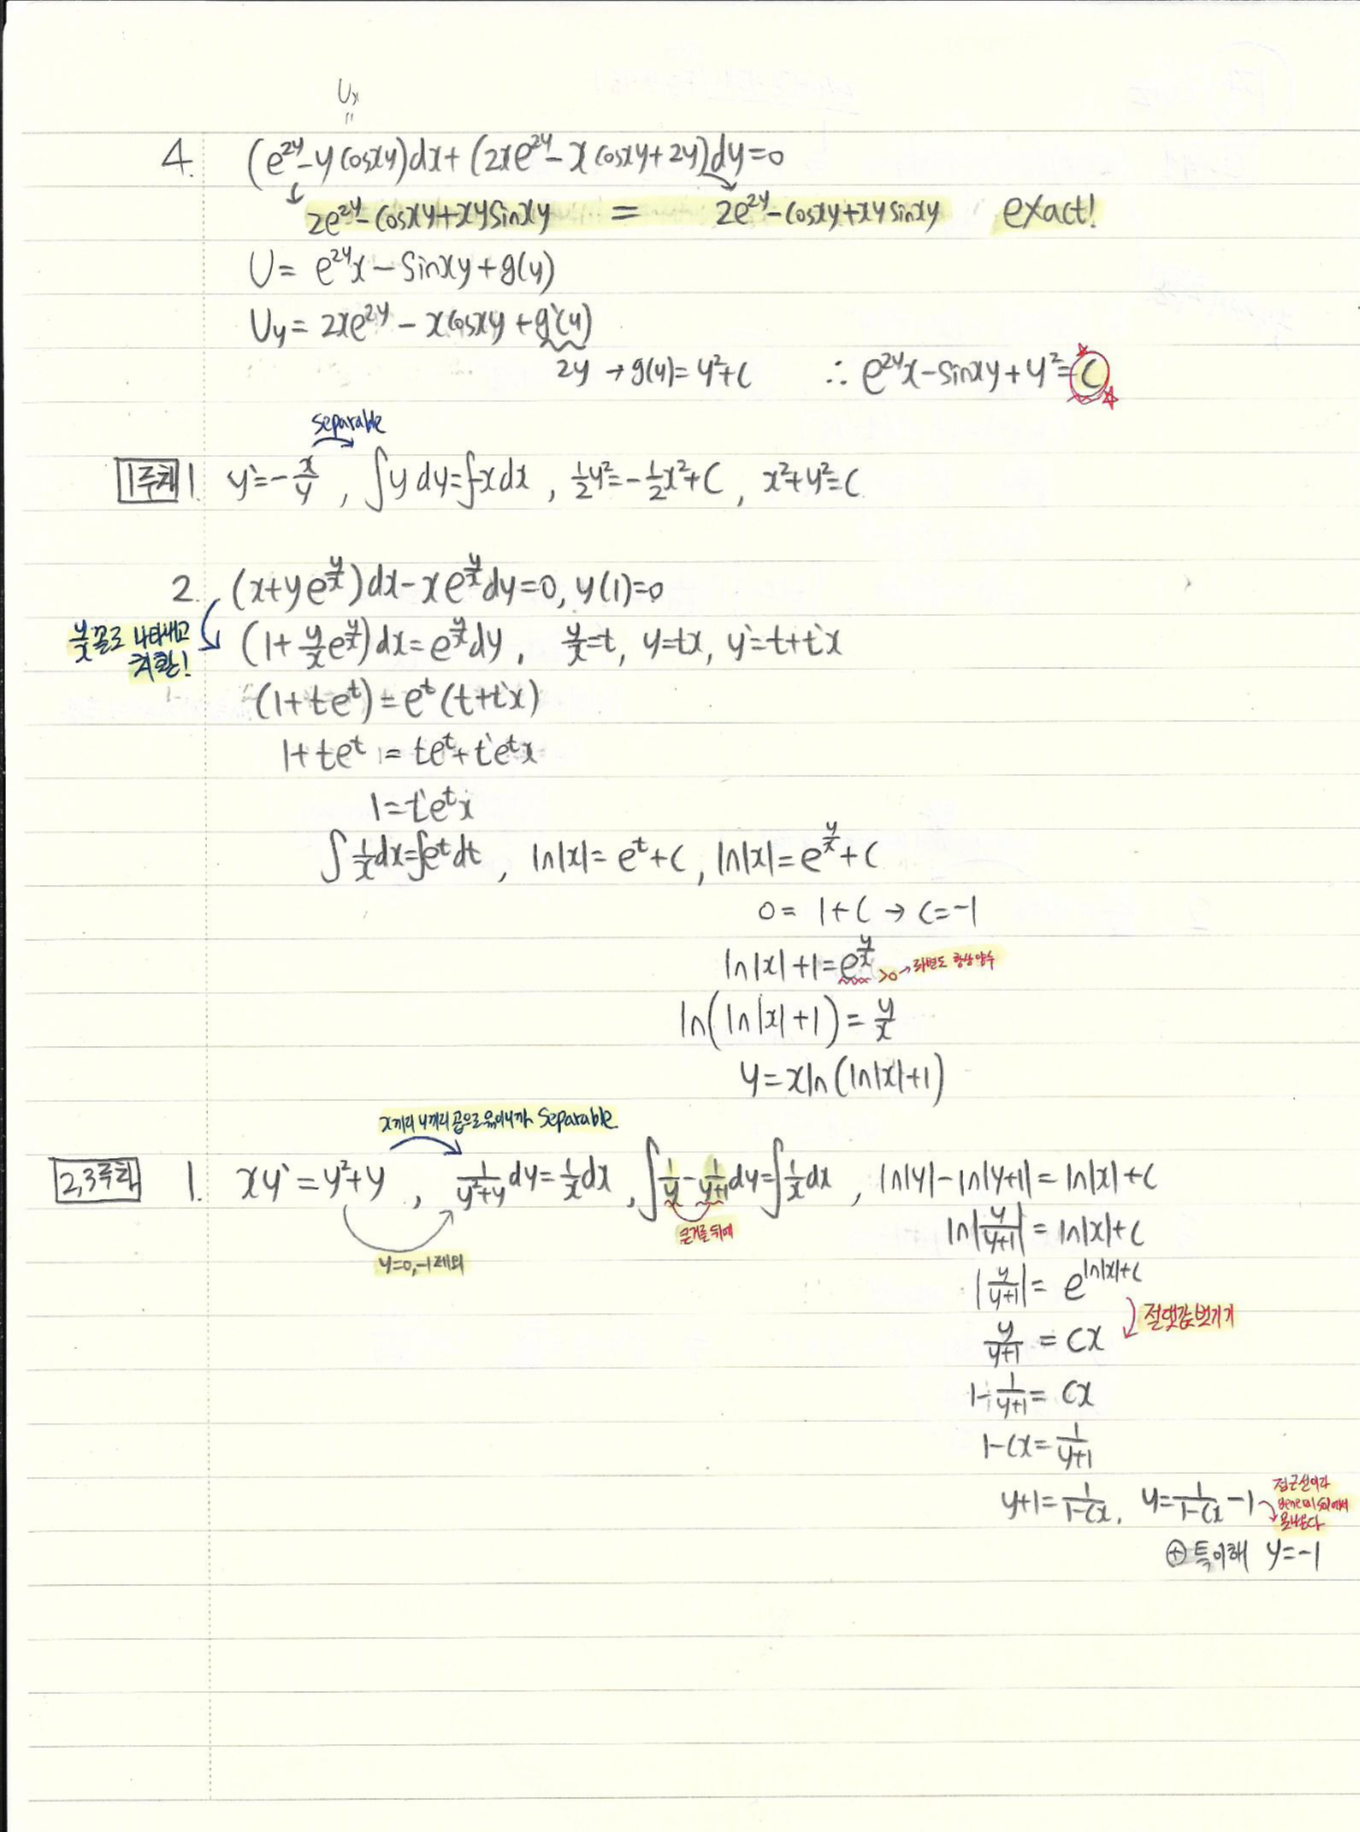 Ux
"
4. (e^{2y}-y cosxy)dx+(2xe^{2y}-x cosxy+2y)dy=0
2e^{2y}-cosxy+xysinxy = 2e^{2y}-cosxy+xysinxy exact!
U= e^{2y}x-Sinxy+g(y)
Uy= 2xe^{2y}-xcosxy+g`(y)
2y →g(y)=y²+C ∴ e^{2y}x-sinxy+y²=C
separable
1주차 1. y`=-x/y , ∫y dy=∫-xdx , ½y²=-½x²+C , x²+y²=C
2. (x+ye^{y/x})dx-xe^{y/x}dy=0, y(1)=0
y/x꼴로 나타내고
치환!
(1+y/x e^{y/x})dx=e^{y/x}dy, y/x=t, y=tx, y`=t+t`x
(1+te^t)=e^t(t+t`x)
1+te^t = te^t+t`e^t x
1=t`e^t x
∫1/x dx=∫e^t dt , ln|x|= e^t+C , ln|x|= e^{y/x}+C
0= 1+C → C=-1
ln|x|+1=e^{y/x} >0→좌변도 항상 양수
ln(ln|x|+1)=y/x
y=xln(ln|x|+1)
x끼리 y끼리 곱으로 묶이니까 Separable
2,3주차 1. xy`=y²+y , 1/(y²+y) dy=1/x dx , ∫1/y-1/(y+1) dy=∫1/x dx , ln|y|-ln|y+1|=ln|x|+C
큰거를 뒤에
y=0,-1 제외
ln|y/(y+1)|=ln|x|+C
|y/(y+1)|= e^{ln|x|+C}
절댓값 벗기기
y/(y+1) = Cx
1-1/(y+1)= Cx
1-Cx=1/(y+1)
y+1=1/(1-Cx), y=1/(1-Cx) -1 점근선이라
에서
못나온다
⊕ 특이해 y=-1